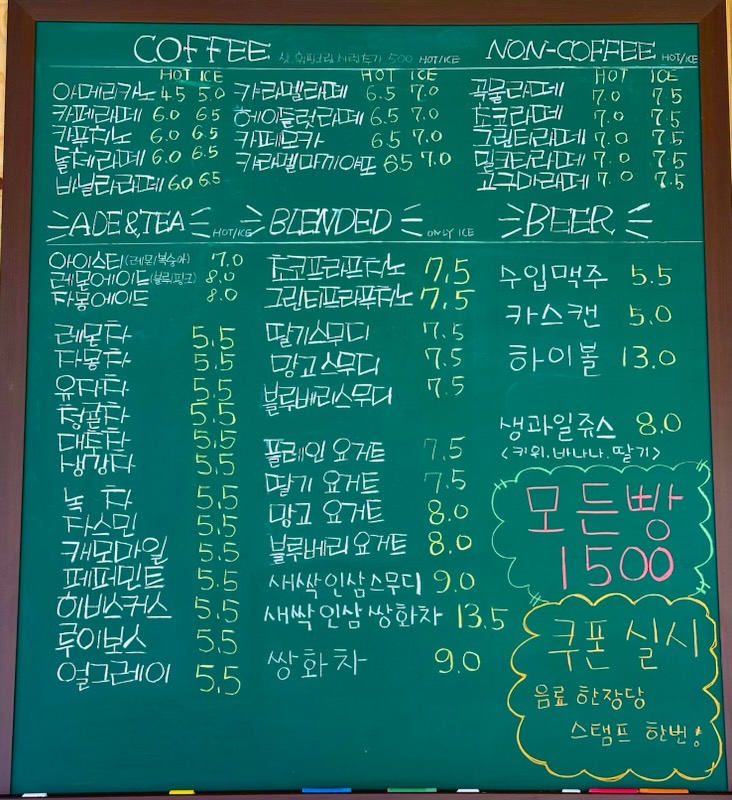 COFFEE 샷, 휘핑크림, 시럽추가 500 HOT/ICE
HOT ICE
아메리카노 4.5 5.0
카페라떼 6.0 6.5
카푸치노 6.0 6.5
돌체라떼 6.0 6.5
바닐라라떼 6.0 6.5
HOT ICE
캬라멜라떼 6.5 7.0
헤이즐럿라떼 6.5 7.0
카페모카 6.5 7.0
카라멜마끼아또 6.5 7.0
NON-COFFEE HOT/ICE
HOT ICE
곡물라떼 7.0 7.5
초코라떼 7.0 7.5
그린티라떼 7.0 7.5
밀크티라떼 7.0 7.5
고구마라떼 7.0 7.5
ADE&TEA HOT/ICE
아이스티(레몬/복숭아) 7.0
레몬에이드(블루/핑크) 8.0
자몽에이드 8.0
레몬차 5.5
자몽차 5.5
유자차 5.5
청귤차 5.5
대추차 5.5
생강차 5.5
녹차 5.5
자스민 5.5
캐모마일 5.5
페퍼민트 5.5
히비스커스 5.5
루이보스 5.5
얼그레이 5.5
BLENDED ONLY ICE
초코프라프치노 7.5
그린티프라푸치노 7.5
딸기스무디 7.5
망고스무디 7.5
블루베리스무디 7.5
플레인 요거트 7.5
딸기 요거트 7.5
망고 요거트 8.0
블루베리 요거트 8.0
새싹인삼스무디 9.0
새싹인삼 쌍화차 13.5
쌍화차 9.0
BEER
수입맥주 5.5
카스캔 5.0
하이볼 13.0
생과일쥬스 8.0
<키위, 바나나, 딸기>
모든빵
1500
쿠폰 실시
음료 한장당
스탬프 한번!